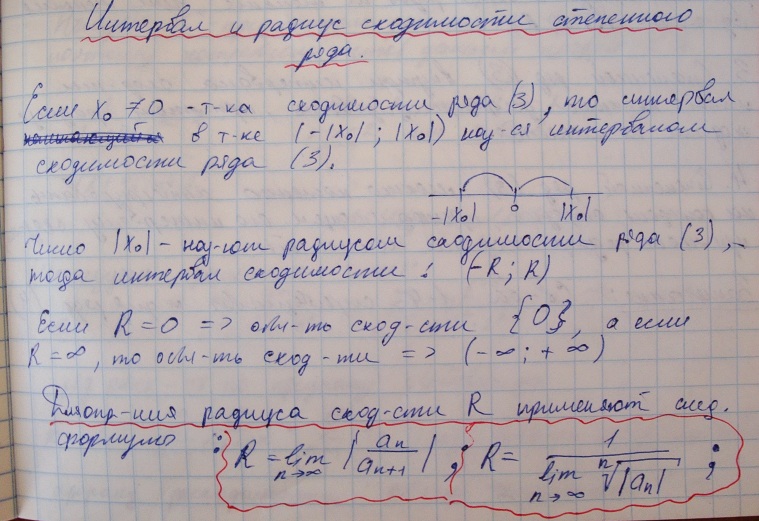 Интервал и радиус сходимости степенного
ряда.
Если x₀ ≠ 0 - т-ка сходимости ряда (3), то интервал
в т-ке (-|x₀| ; |x₀|) наз-ся интервалом
сходимости ряда (3).
-|x₀| 0 |x₀|
Число |x₀| - наз-ют радиусом сходимости ряда (3), -
тогда интервал сходимости : (-R ; R)
Если R = 0 => обл-ть сход-сти {0}, а если
R = ∞, то обл-ть сход-ти => (-∞ ; +∞)
Для опр-ния радиуса сход-сти R применяют след.
формулы : R = lim n→∞ |aₙ / aₙ₊₁| ; R = 1 / lim n→∞ ⁿ√|aₙ| ;